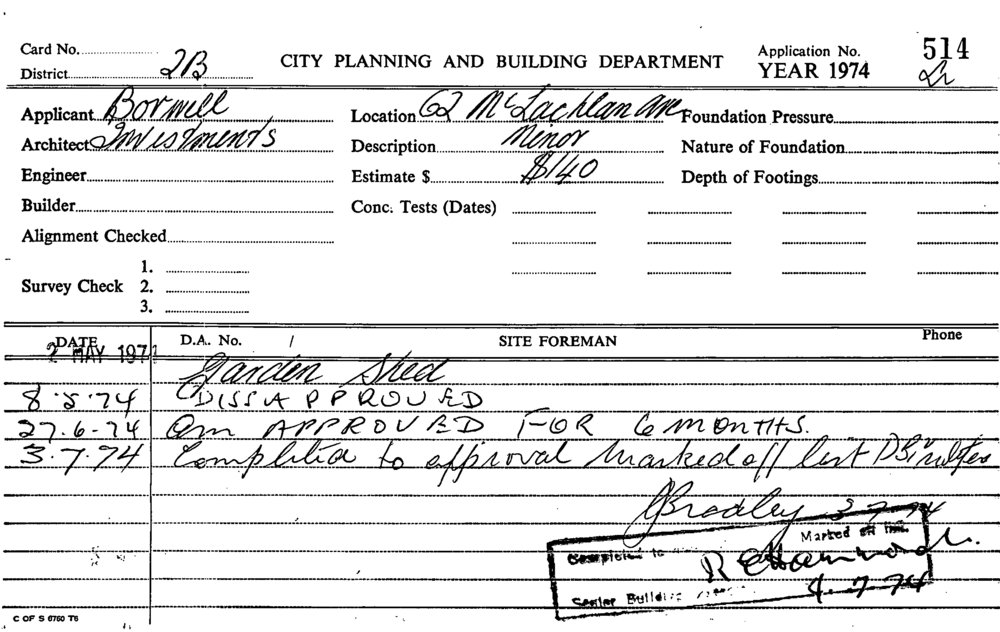 Card No.
District 2B
CITY PLANNING AND BUILDING DEPARTMENT
Application No. 514
YEAR 1974
Applicant
Location 62 McLachlan Ave
Foundation Pressure
Architect Investments
Description Minor
Nature of Foundation
Engineer
Estimate $ $140
Depth of Footings
Builder
Conc. Tests (Dates)
Alignment Checked
Survey Check 1.
2.
3.
DATE D.A. No. / SITE FOREMAN Phone
2 MAY 1974
Garden Shed
8.5.74 DISSAPPROVED
27.6-74 APPROVED FOR 6 MONTHS.
3.7.74 Completed to approval marked off list
Bradley 3-7-74
Completed to Marked off list.
Senior Building 4-7-74
C OF S 6760 T6